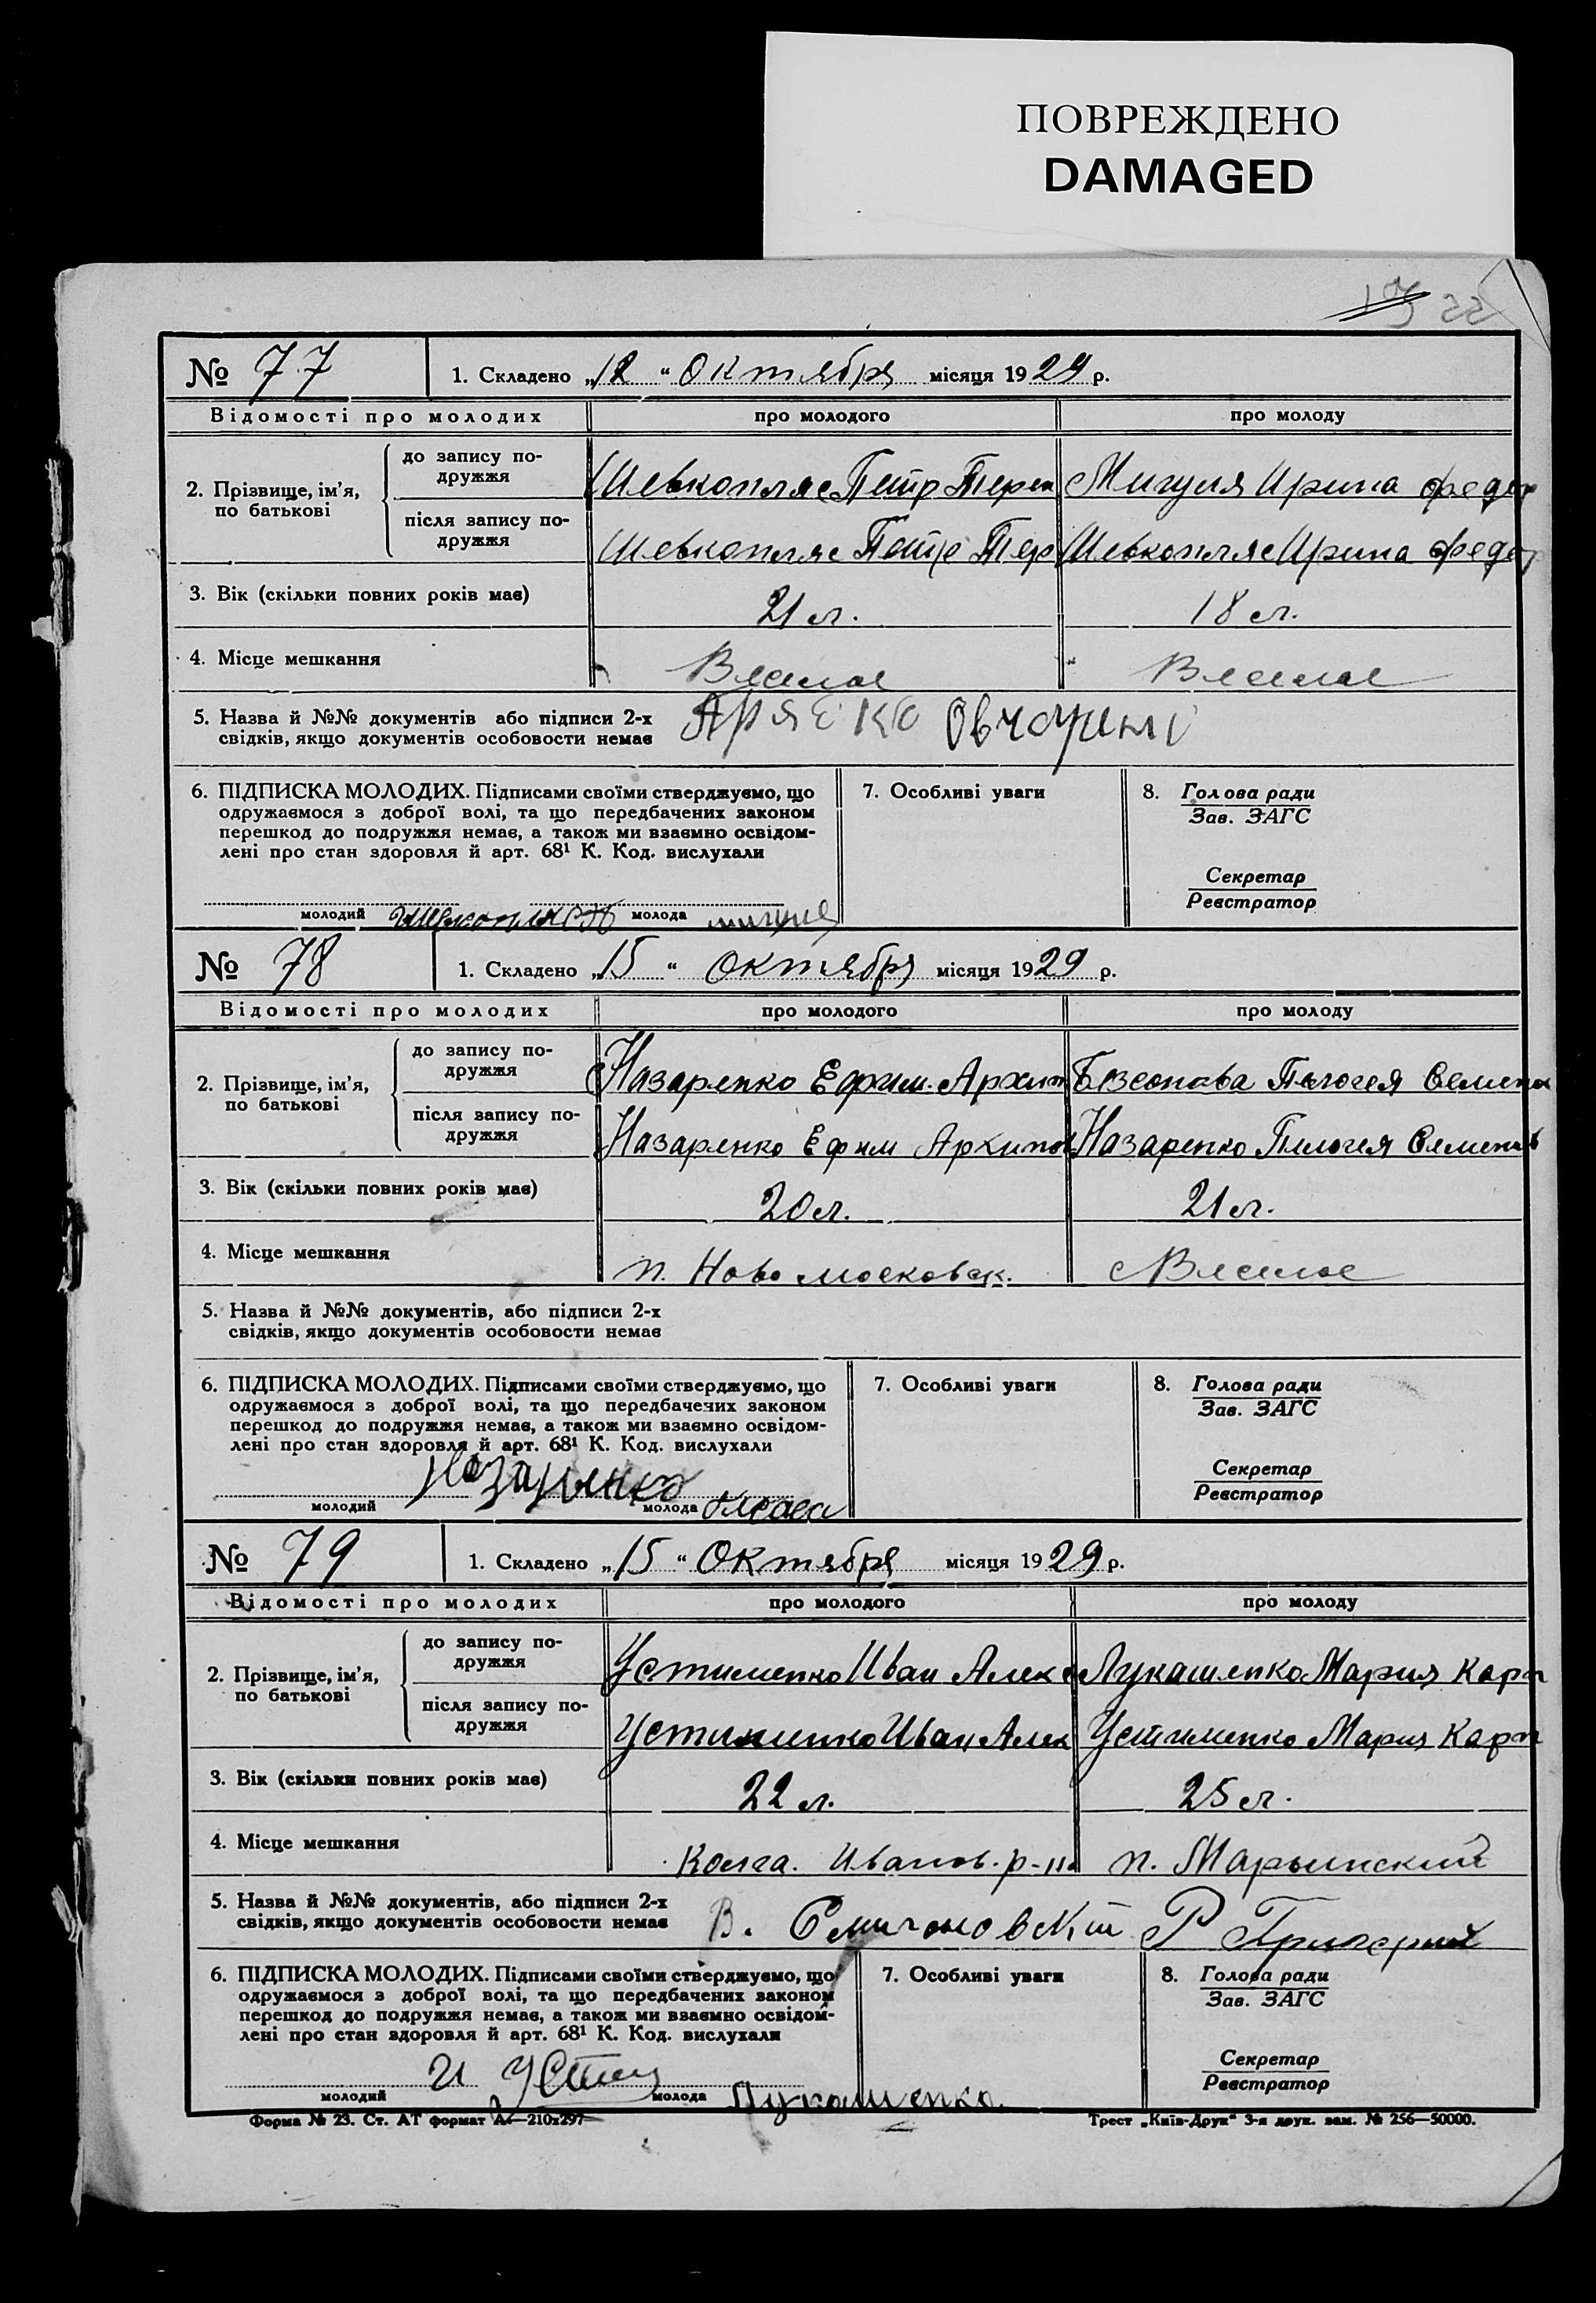 ПОВРЕЖДЕНО
DAMAGED
22
№ 77
1. Складено „12“ Октября місяця 1929 р.
Відомості про молодих про молодого про молоду
2. Прізвище, ім’я, по батькові
до запису подружжя
Шевкопляс Петр Терен Мигуля Ирина Федор
після запису подружжя
Шевкопляс Петр Тер Шевкопляс Ирина Федор
3. Вік (скільки повних років має) 21 л. 18 л.
4. Місце мешкання Веселое Веселое
5. Назва й №№ документів або підписи 2-х
свідків, якщо документів особовости немає
6. ПІДПИСКА МОЛОДИХ. Підписами своїми стверджуємо, що
одружаємося з доброї волі, та що передбачених законом
перешкод до подружжя немає, а також ми взаємно освідом-
лені про стан здоровля й арт. 68¹ К. Код. вислухали
молодий молода мигуля
7. Особливі уваги
8. Голова ради
Зав. ЗАГС
Секретар
Реєстратор
№ 78
1. Складено „15“ октября місяця 1929 р.
Відомості про молодих про молодого про молоду
2. Прізвище, ім’я, по батькові
до запису подружжя
Назаренко Ефим Архип Безсонова Пелогея Семенов
після запису подружжя
Назаренко Ефим Архипов Назаренко Пелогея Семенов
3. Вік (скільки повних років має) 20 л. 21 л.
4. Місце мешкання п. Ново московск. с Веселое
5. Назва й №№ документів, або підписи 2-х
свідків, якщо документів особовости немає
6. ПІДПИСКА МОЛОДИХ. Підписами своїми стверджуємо, що
одружаємося з доброї волі, та що передбачених законом
перешкод до подружжя немає, а також ми взаємно освідом-
лені про стан здоровля й арт. 68¹ К. Код. вислухали
молодий Назаренко молода
7. Особливі уваги
8. Голова ради
Зав. ЗАГС
Секретар
Реєстратор
№ 79
1. Складено „15“ Октября місяця 1929 р.
Відомості про молодих про молодого про молоду
2. Прізвище, ім’я, по батькові
до запису подружжя
Устименко Иван Алекс Лукашенко Мария Карп
після запису подружжя
Устименко Иван Алек Устименко Мария Карп
3. Вік (скільки повних років має) 22 л. 25 л.
4. Місце мешкання Иванов. р-на п. Марьинский
5. Назва й №№ документів, або підписи 2-х
свідків, якщо документів особовости немає В.
6. ПІДПИСКА МОЛОДИХ. Підписами своїми стверджуємо, що
одружаємося з доброї волі, та що передбачених законом
перешкод до подружжя немає, а також ми взаємно освідом-
лені про стан здоровля й арт. 68¹ К. Код. вислухали
молодий молода Лукашенко
7. Особливі уваги
8. Голова ради
Зав. ЗАГС
Секретар
Реєстратор
Форма № 23. Ст. АТ формат А4—210х297 Трест „Київ-Друк“ 3-я друк. зам. № 256—50000.